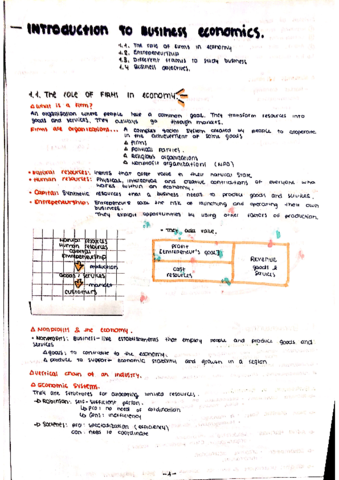 - INTRODUCTION TO BUSINESS ECONOMICS.
1.1. The role of firms in economy
1.2. Entrepreneurship
1.3. Different to study business
1.4 Business objectives.
1.1. The role of firms in economy
What is a firm?
An organization where people have a common goal. They transform resources into
goods and services. They always go through markets.
Firms are organizations... A complex social system created by people to cooperate
in the achievement of some goals
Firms
Political parties.
Religious organizations
Nonprofit organizations (NPO)
• Natural resources: Inputs that have value in their natural state.
• Human resources: Physical, intellectual and creative contributions of everyone who
works within an economy.
• Capital: resources that a business needs to produce goods and services.
• Entrepreneurship: Entrepreneurs take the risk of and operating their own
business.
They exploit opportunities by using other factors of production.
• They add value.
Natural resources
Human resources
Capital
Entrepreneurship
production
Goods / services
market
customers
profit
(entrepreneur's goal)
cost
resources
Revenue
goods &
services
Nonprofits & the economy.
• Nonprofits: Business-like establishments that employ people and produce goods and
services
goals: to contribute to the economy.
produce to support economic stability and growth in a region
Vertical chain of an industry.
Economic systems.
They are structures for allocating limited resources.
Robinson: self-sufficient person.
pro: no need of coordination
cons: inefficiency
Societies: pro: specialization (efficiency)
con: need to coordinate
-1-